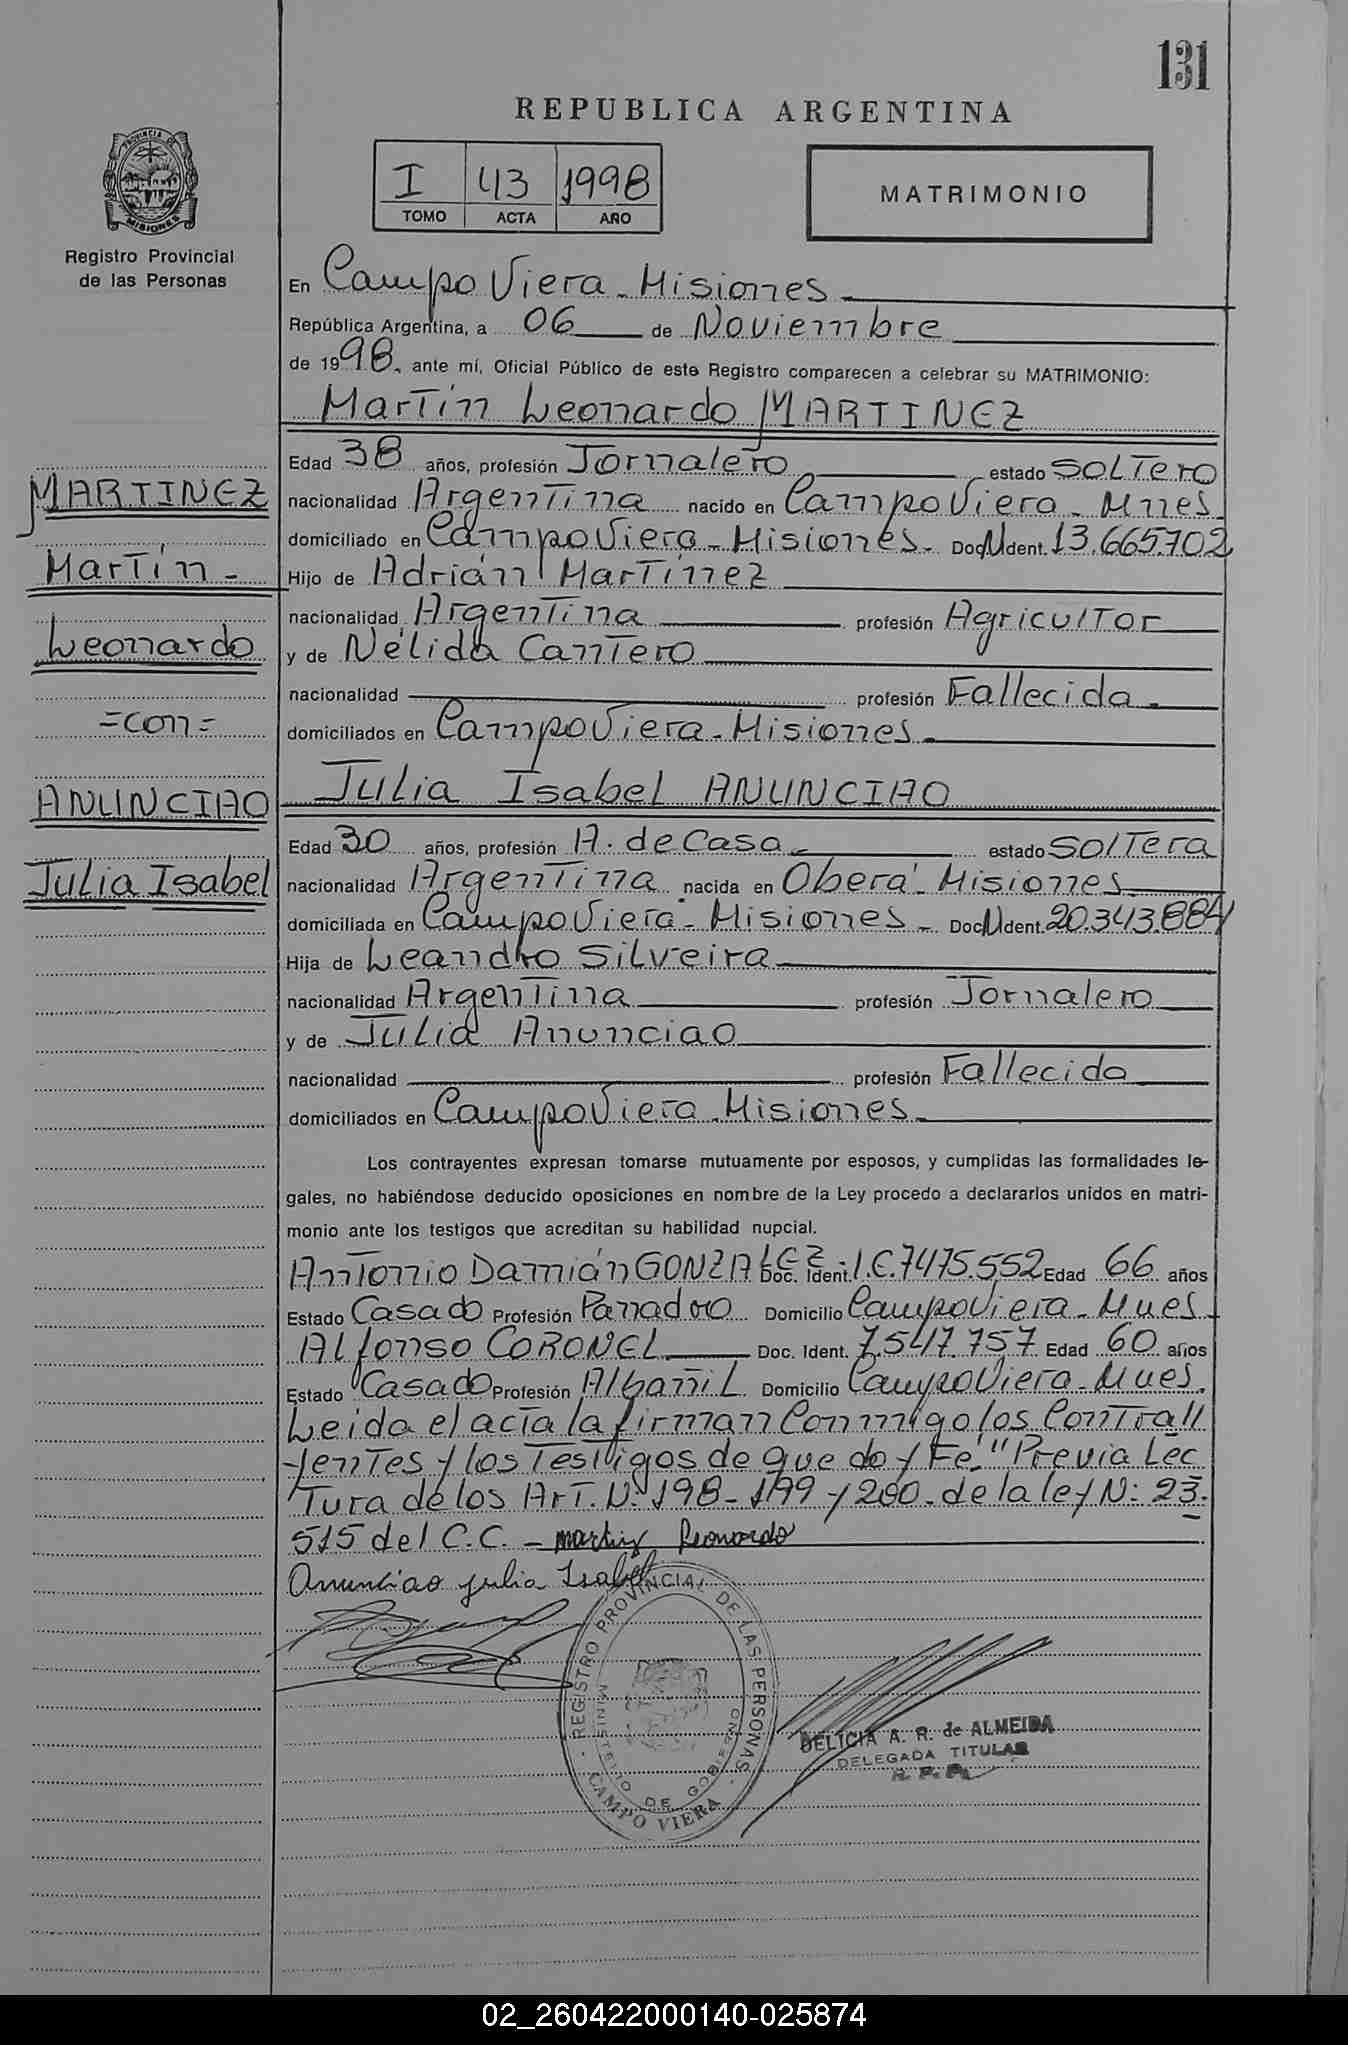 131
REPUBLICA ARGENTINA
PROVINCIA DE
MISIONES
Registro Provincial
de las Personas
I 43 1998
TOMO ACTA AÑO
MATRIMONIO
En Campo Viera - Misiones
República Argentina, a 06 de Noviembre
de 1998, ante mí, Oficial Público de este Registro comparecen a celebrar su MATRIMONIO:
Martín Leonardo MARTINEZ
Edad 38 años, profesión Jornalero estado soltero
nacionalidad Argentina nacido en Campo Viera - Mnes.
domiciliado en Campo Viera - Misiones - Doc. N Ident. 13.665.702
Hijo de Adrián Martínez
nacionalidad Argentina profesión Agricultor
y de Nélida Cantero
nacionalidad profesión Fallecida.
domiciliados en Campo Viera - Misiones -
Julia Isabel ANUNCIAO
Edad 30 años, profesión A. de Casa estado soltera
nacionalidad Argentina nacida en Oberá - Misiones
domiciliada en Campo Viera - Misiones - Doc. N Ident. 20.343.884
Hija de Leandro Silveira
nacionalidad Argentina profesión Jornalero
y de Julia Anunciao
nacionalidad profesión Fallecida
domiciliados en Campo Viera - Misiones -
MARTINEZ
Martín -
Leonardo
=con=
ANUNCIAO
Julia Isabel
Los contrayentes expresan tomarse mutuamente por esposos, y cumplidas las formalidades le-
gales, no habiéndose deducido oposiciones en nombre de la Ley procedo a declararlos unidos en matri-
monio ante los testigos que acreditan su habilidad nupcial.
Antonio Damián GONZALEZ Doc. Ident. I.C. 7475.552 Edad 66 años
Estado Casado Profesión Panadero Domicilio Campo Viera - Mnes.
Alfonso CORONEL Doc. Ident. 7.547.757 Edad 60 años
Estado Casado Profesión Albañil Domicilio Campo Viera - Mnes.
Leida el acta la firman Conmigo los Contra//
yentes y los Testigos de que doy Fé." Previa Lec
Tura de los Art. N: 198 - 199 y 200 - de la ley N: 23.
515 del C.C. - Martinez Leonardo
Anunciao julia Isabel
REGISTRO PROVINCIAL DE LAS PERSONAS
MINISTERIO DE GOBIERNO
CAMPO VIERA
DELICIA A. R. de ALMEIDA
DELEGADA TITULAR
R. P. P.
02_260422000140-025874